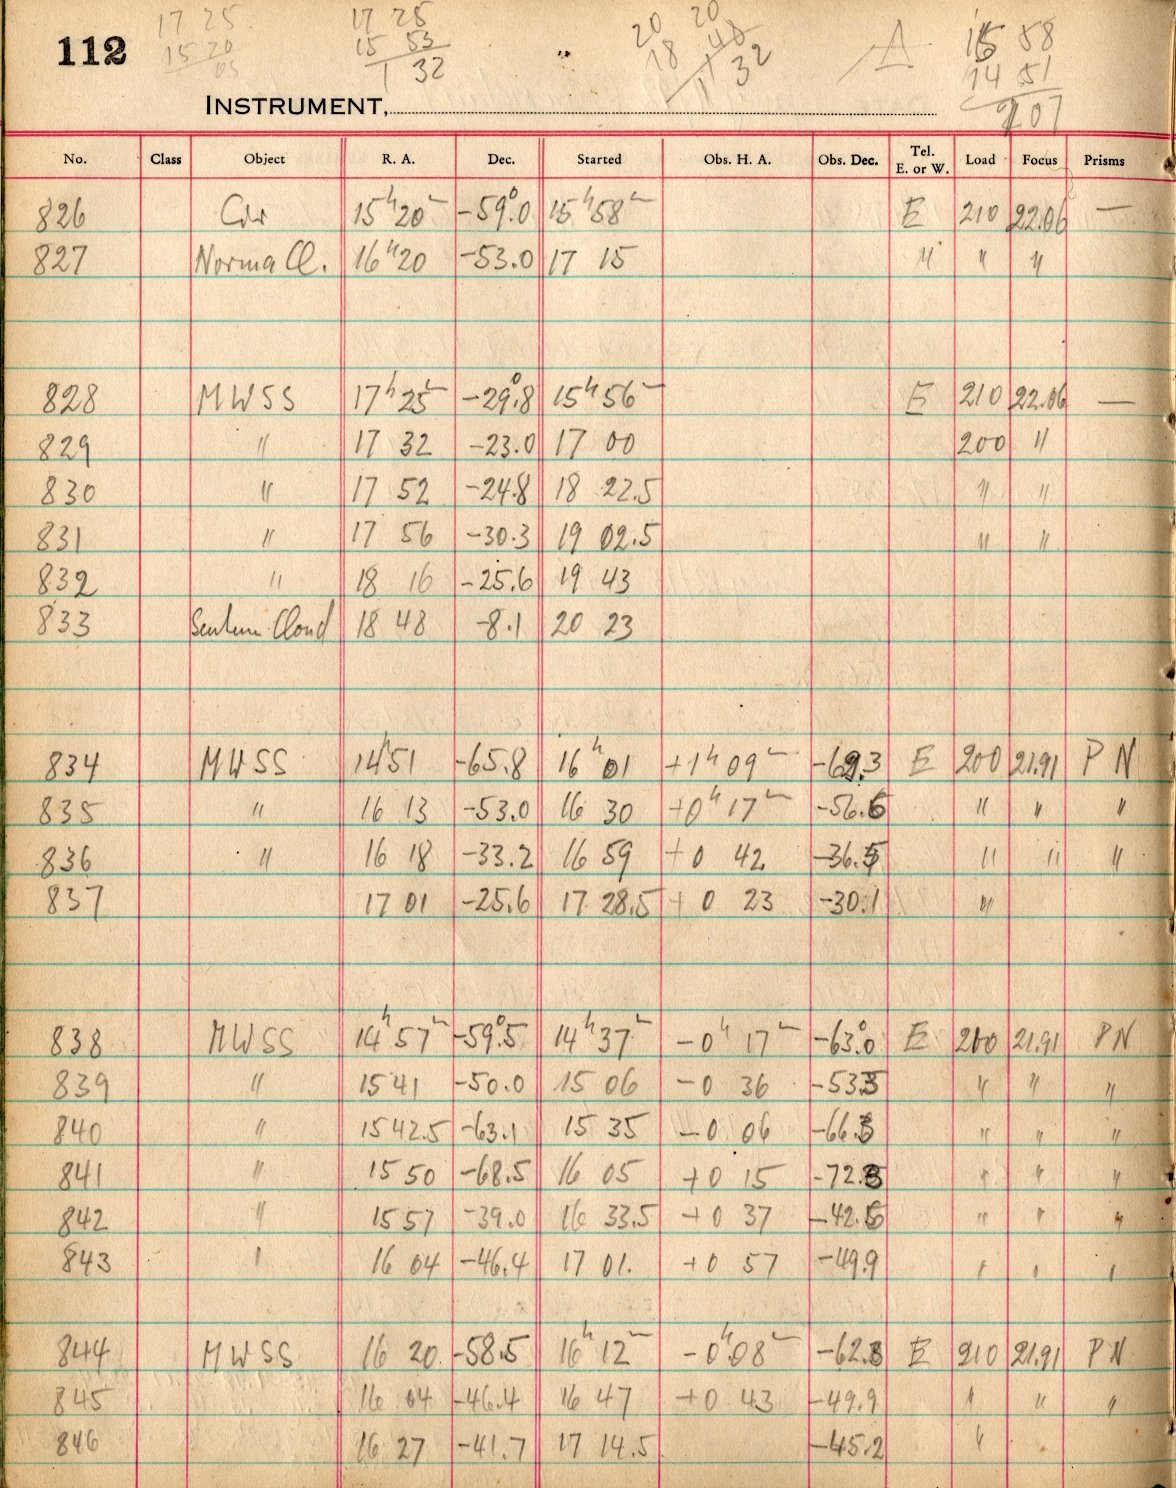 17 25 17 25 20 20 A 15 58
112 15 20 15 53 18 48 14 51
05 1 32 1 32 1 07
INSTRUMENT,
No. Class Object R. A. Dec. Started Obs. H. A. Obs. Dec. Tel. E. or W. Load Focus Prisms
826 Cir 15h 20m -59°.0 15h 58m E 210 22.06 —
827 Norma Cl. 16h 20 -53.0 17 15 " " "
828 MWSS 17h 25m -29°.8 15h 56m E 210 22.06 —
829 " 17 32 -23.0 17 00 200 "
830 " 17 52 -24.8 18 22.5 " "
831 " 17 56 -30.3 19 02.5 " "
832 " 18 16 -25.6 19 43
833 Scutum Cloud 18 48 -8.1 20 23
834 MWSS 14h 51 -65.8 16h 01 +1h 09m -69.3 E 200 21.91 PN
835 " 16 13 -53.0 16 30 +0h 17m -56.6 " " "
836 " 16 18 -33.2 16 59 +0 42 -36.5 " " "
837 17 01 -25.6 17 28.5 +0 23 -30.1 "
838 MWSS 14h 57m -59°.5 14h 37m -0h 17m -63°.0 E 200 21.91 PN
839 " 15 41 -50.0 15 06 -0 36 -53.5 " " "
840 " 15 42.5 -63.1 15 35 -0 06 -66.5 " " "
841 " 15 50 -68.5 16 05 +0 15 -72.3 " " "
842 " 15 57 -39.0 16 33.5 +0 37 -42.6 " " "
843 " 16 04 -46.4 17 01. +0 57 -49.9 " " "
844 MWSS 16 20 -58.5 16h 12m -0h 08m -62.3 E 210 21.91 PN
845 16 04 -46.4 16 47 +0 43 -49.9 " " "
846 16 27 -41.7 17 14.5 -45.2 "